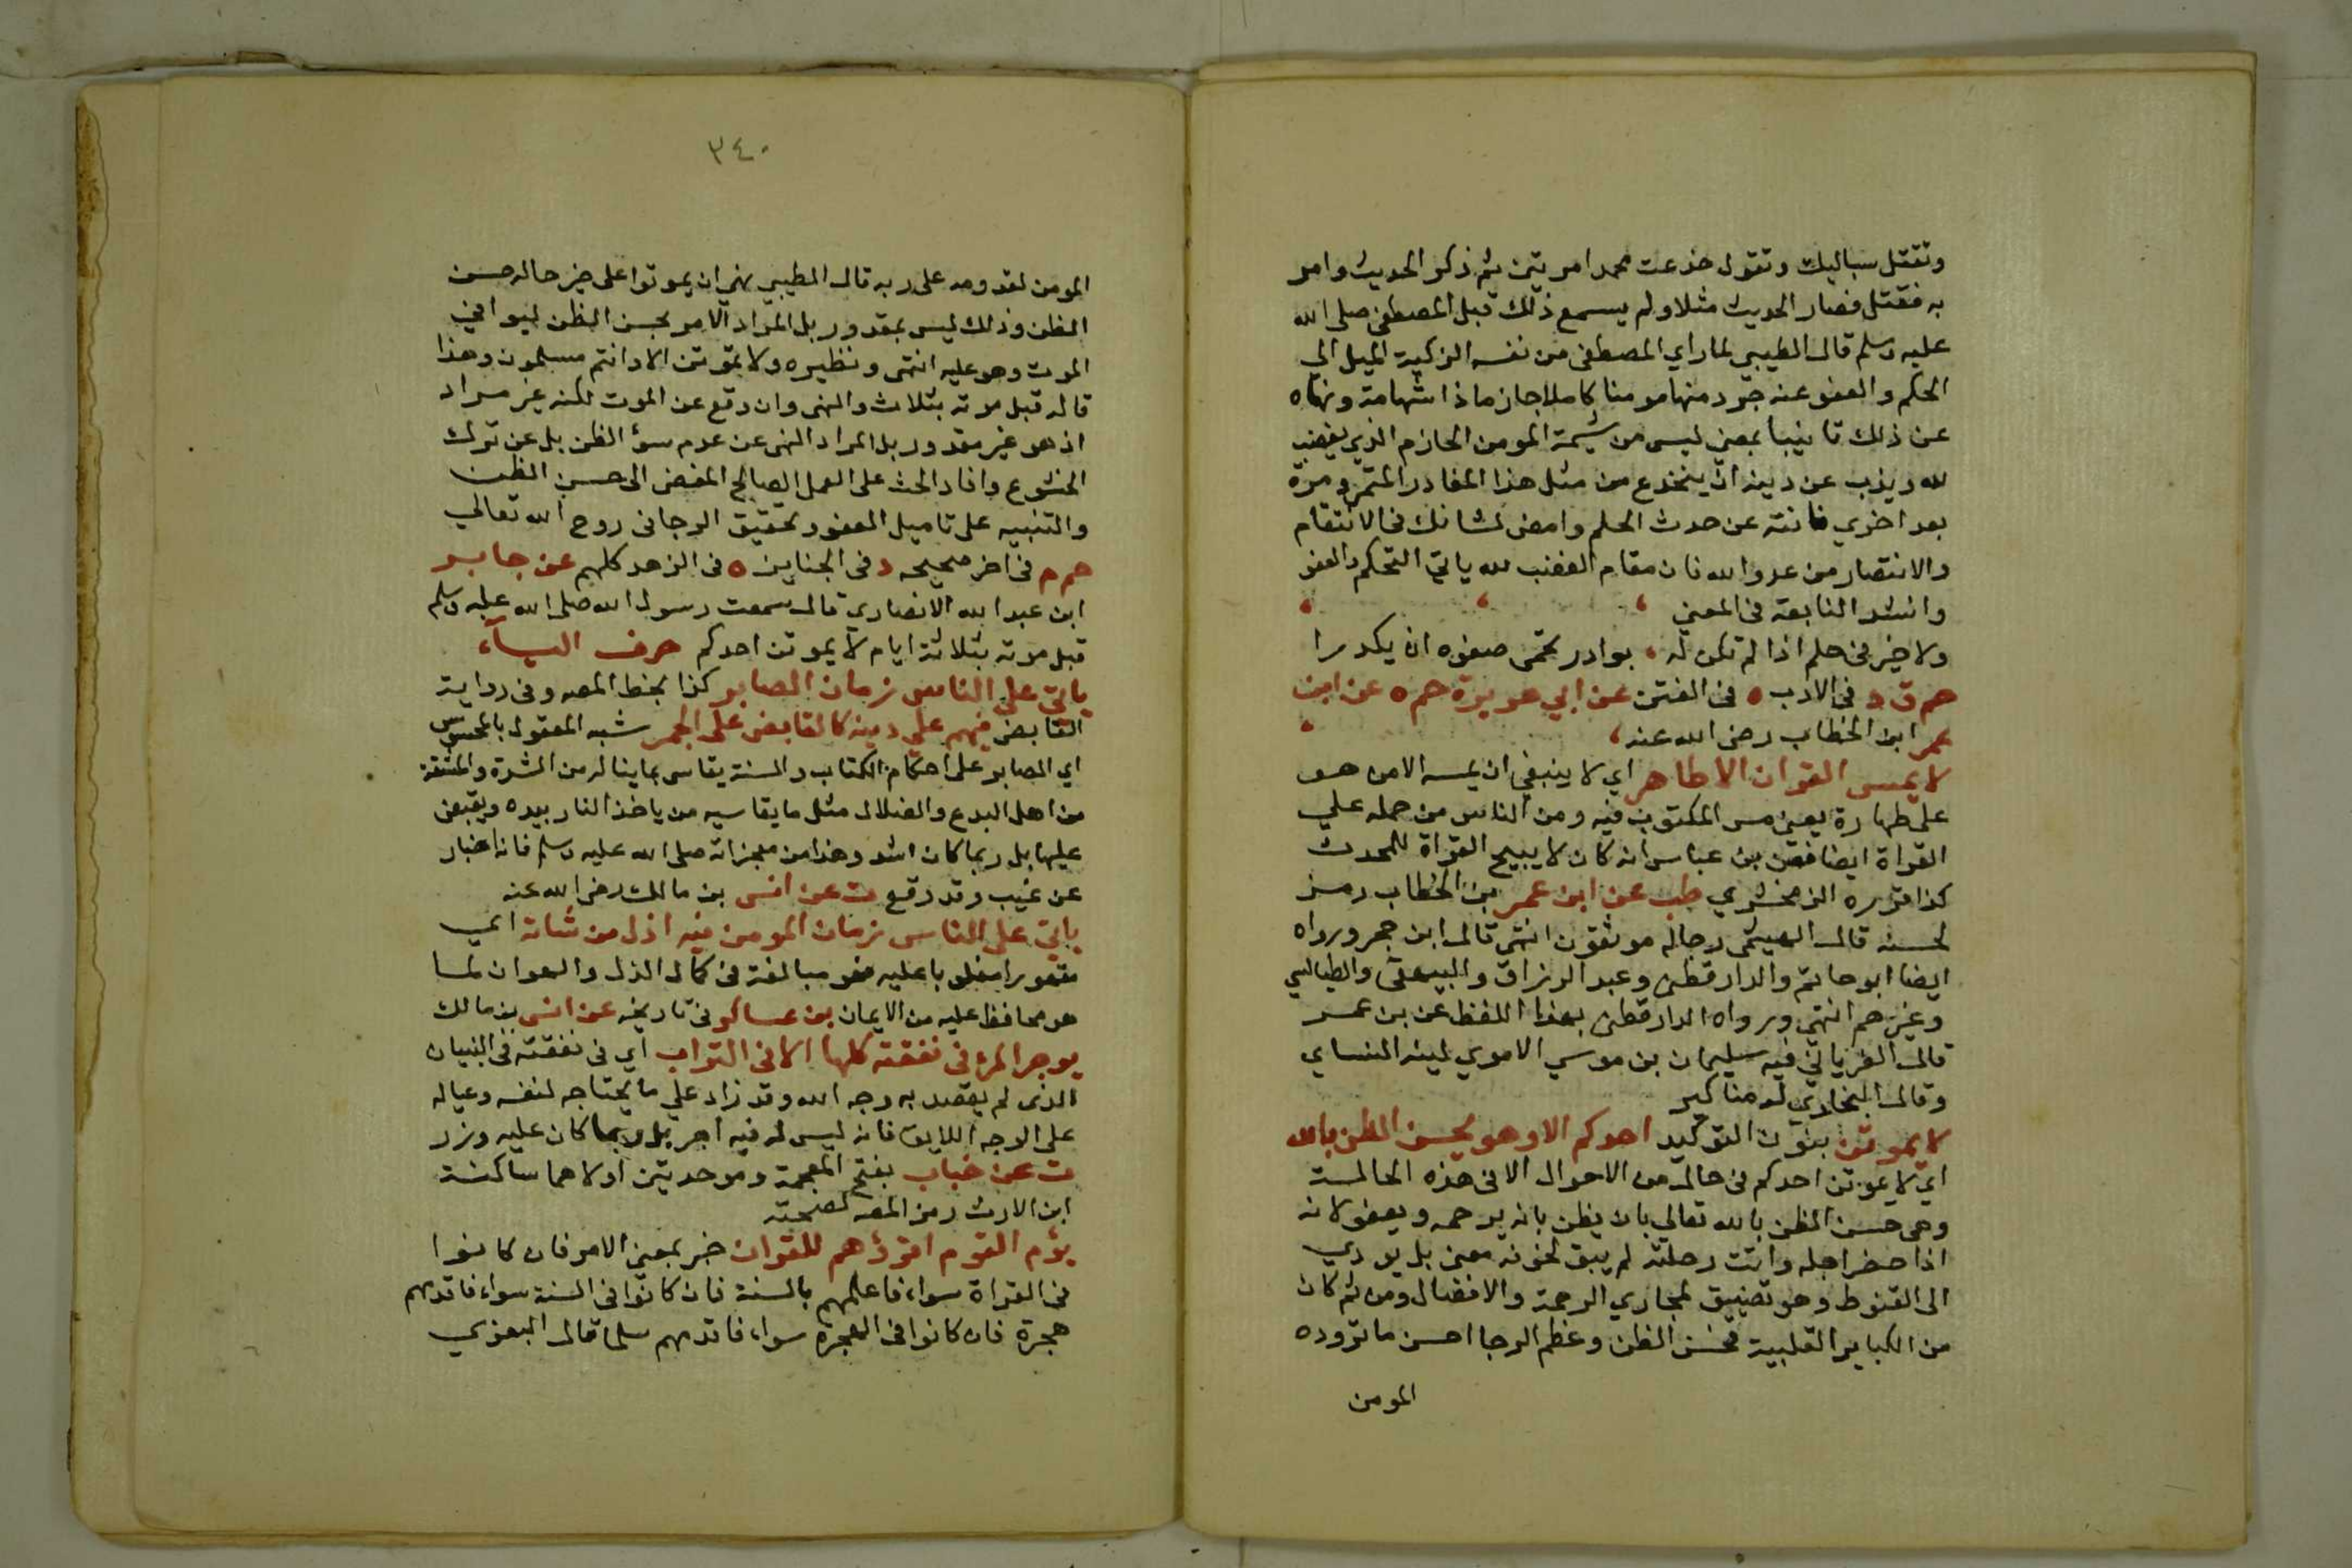 وتفتل سباليك وتقول خدعت محمدا مرتين ثم ذكر الحديث وامر
به فقتل فصار الحديث مثلا ولم يسمع ذلك قبل المصطفى صلى الله
عليه وسلم قال الطيبي لما راي المصطفى من نفسه الزكية الميل الي
الحكم والعفو عنه جرد منها مومنا كاملا حازما ذا شهامة ونهاه
عن ذلك تانيبا بمعني ليس من شيمة المومن الحازم الذي يغضب
لله ويذب عن دينه ان ينخدع من مثل هذا الغادر المتمرد مرة
بعد اخري فانته عن حدث الحلم وامض لشانك في الانتقام
والانتصار من عدو الله فان مقام الغضب لله يابي التحكم والعفو
وانشد النابغة في المعني
ولا خير في حلم اذا لم تكن له ، بوادر تحمى صفوه ان يكدرا
حم ق د في الادب ه في الفتن عن ابي هريرة حم ه عن ابن
عمر ابن الخطاب رضى الله عنه ،
لا يمس القران الا طاهر اي لا ينبغي ان يمسه الا من هو
على طهارة يعني مس المكتوب فيه ومن الناس من حمله علي
القراة ايضا فعن بن عباس انه كان لا يبيح القراة للمحدث
كذا قرره الزمخشري طب عن ابن عمر بن الخطاب رمز
لحسنه قال الهيثمى رجاله موثقون انتهى قال ابن حجر ورواه
ايضا ابو حاتم والدارقطنى وعبد الرزاق والبيهقى والطيالسي
وغيرهم انتهي ورواه الدارقطنى بهذا اللفظ عن بن عمر
قال الغرياني فيه سليمان بن موسي الاموي لينه النساي
وقال البخاري له مناكير
لا يموتن بنون التوكيد احدكم الا وهو يحسن الظن بالله
اي لا يموتن احدكم في حالة من الاحوال الا في هذه الحالة
وهى حسن الظن بالله تعالي بان يظن بانه يرحمه ويعفو لانه
اذا حضر اجله واتت رحلته لم يبق لخوفه معنى بل يودي
الى القنوط وهو تضييق لمجاري الرحمة والافضال ومن ثم كان
من الكباير القلبية فحسن الظن وعظم الرجا احسن ما تزوده
المومن
٣٤٠
المومن لقدومه على ربه قال الطيبي نهي ان يموتوا على غير حالة حسن
الظن وذلك ليس بمقدور بل المراد الامر بحسن الظن ليوافي
الموت وهو عليه انتهى ونظيره ولا تموتن الا وانتم مسلمون وهذا
قاله قبل موته بثلاث والنهى وان وقع عن الموت لكنه غير مراد
اذ هو غير مقدور بل المراد النهى عن عدم سوٓ الظن بل عن ترك
الخشوع وافاد الحث على العمل الصالح المفضى الى حسن الظن
والتنبيه على تاميل العفو وتحقيق الرجا في روح الله تعالي
حم م في اخر صحيحه د في الجنايز ه فى الزهد كلهم عن جابر
ابن عبد الله الانصاري قال سمعت رسول الله صلى الله عليه وسلم
قبل موته بثلاثة ايام لا يموتن احدكم حرف اليآء
ياتي على الناس زمان الصابر كذا بخط المصه وفي رواية
القابض فيهم على دينه كالقابض على الجمر شبه المعقول بالمحسوس
اي الصابر على احكام الكتاب والسنة يقاسى بما يناله من الشدة والمشقة
من اهل البدع والضلال مثل ما يقاسيه من ياخذ النار بيده ويقبض
عليها بل ربما كان اشد وهذا من معجزاته صلى الله عليه وسلم فانه اخبار
عن غيب وقد وقع ت عن انس بن مالك رضى الله عنه
ياتي على الناس زمان المومن فيه اذل من شاته اي
مقهورا مغلوبا عليه فهو مبالغة في كمال الذل والهوان لما
هو محافظ عليه من الايمان بن عساكر في تاريخه عن انس بن مالك
يوجر المرٔ في نفقته كلها الا في التراب اي في نفقته في البنيان
الذى لم يقصد به وجه الله وقد زاد علي ما يحتاجه لنفسه وعياله
على الوجه اللايق فانه ليس له فيه اجر بل ربما كان عليه وزر
ت عن خباب بفتح المعجمة وموحدتين اولاهما ساكنة
ابن الارت رمز المصه لصحته
يؤم القوم اقرؤهم للقران خبر بمعنى الامر فان كانوا
في القراة سواء فاعلمهم بالسنة فان كانوا في السنة سواء فاقدمهم
هجرة فان كانوا في الهجرة سواء فاقدمهم سلما قال البغوي